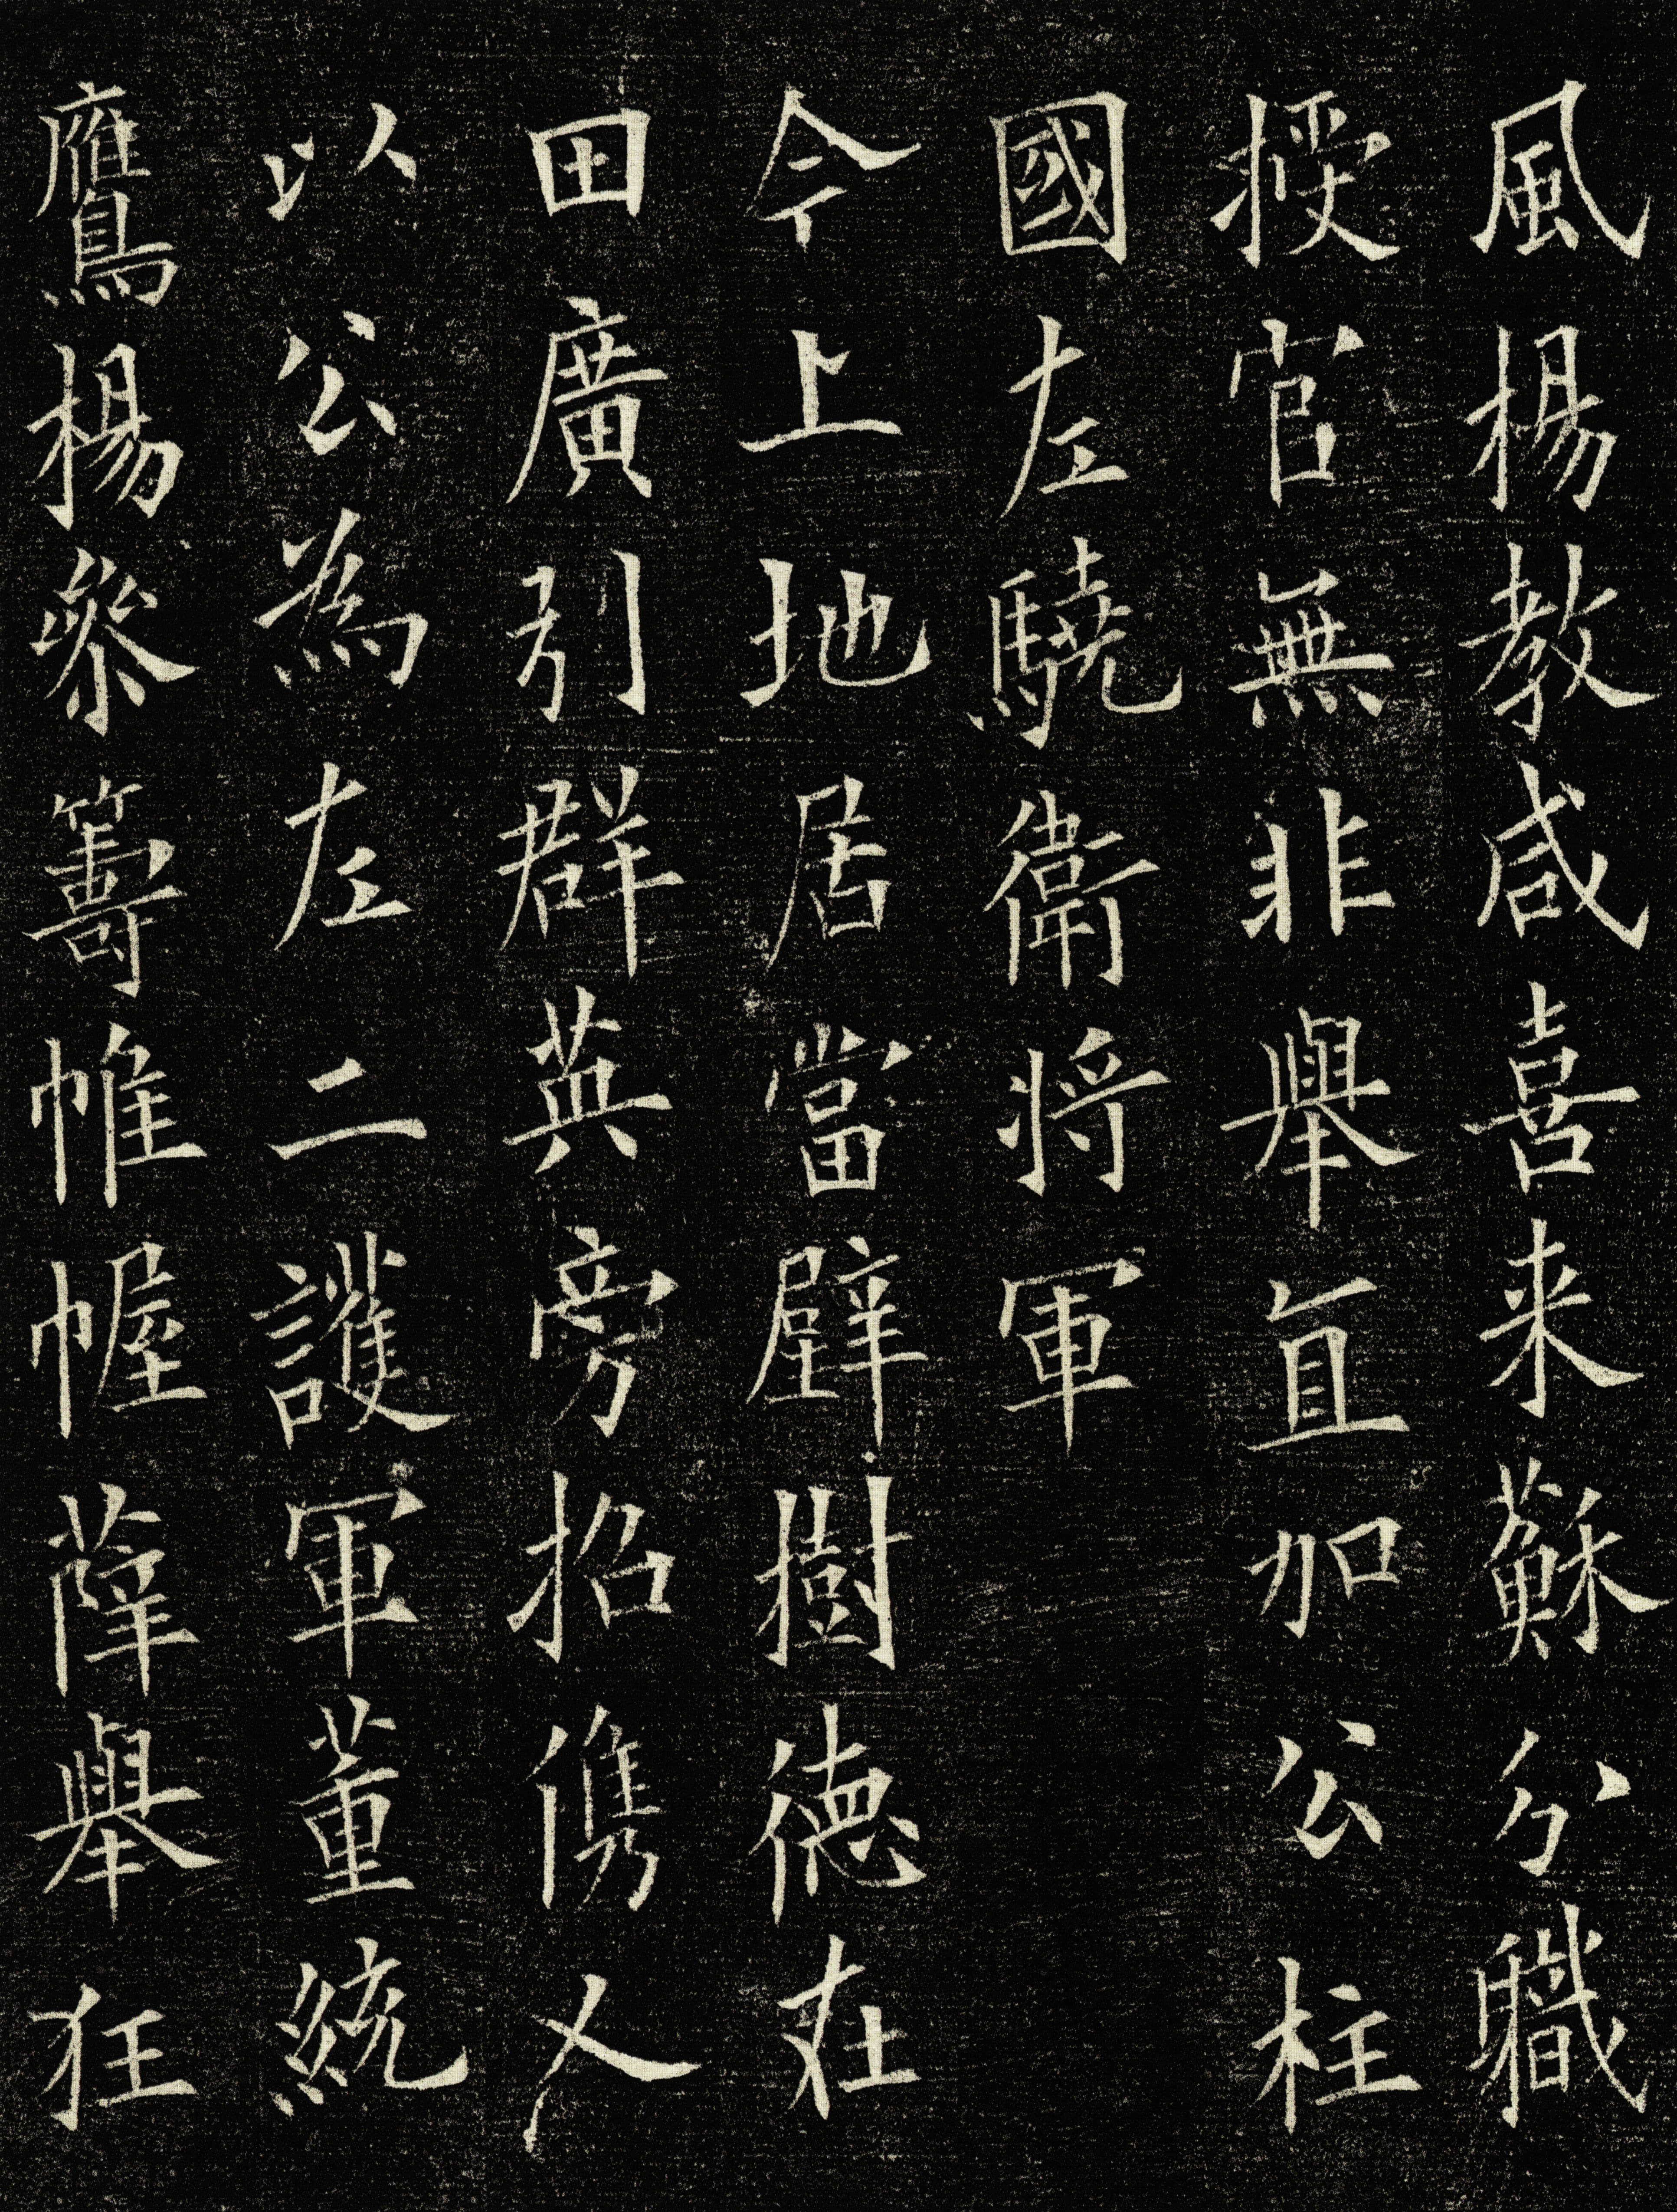 風揚教咸喜来蘇分職
授官無非舉直加公柱
國左驍衛将軍
今上地居當璧樹德在
田廣引群英旁招儁人
以公為左二護軍董統
鷹揚參籌帷幄薛舉狂